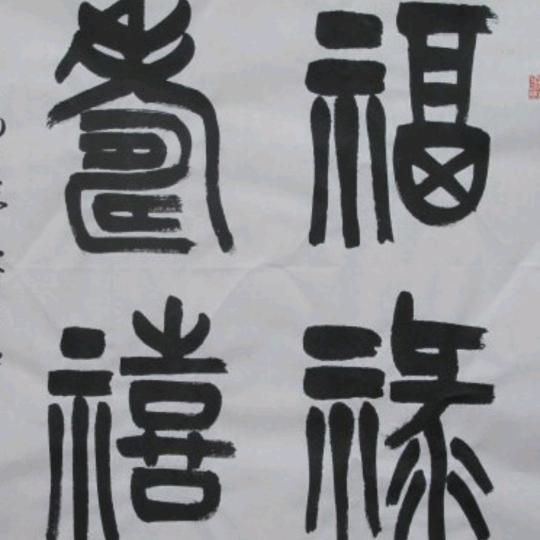 福祿
壽禧